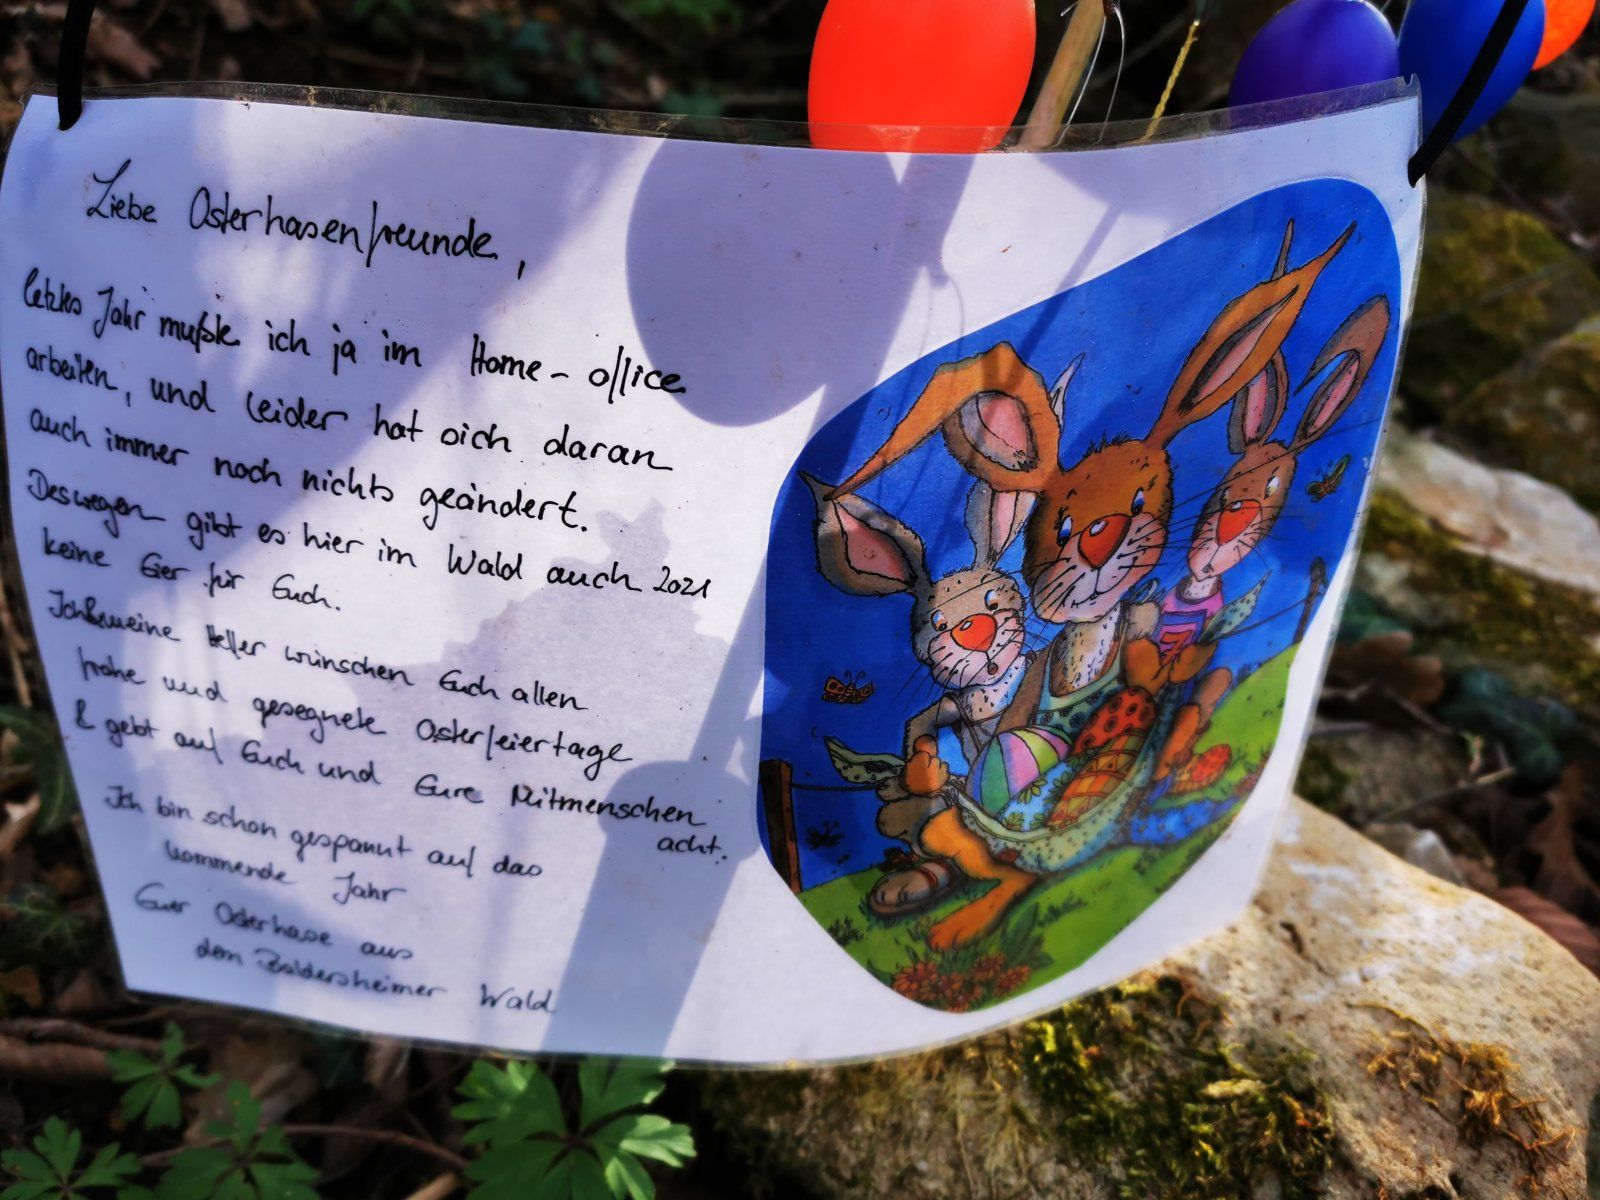 Liebe Osterhasenfreunde,
letztes Jahr mußte ich ja im Home-office
arbeiten, und leider hat sich daran
auch immer noch nichts geändert.
Deswegen gibt es hier im Wald auch 2021
keine Eier für Euch.
Ich & meine Helfer wünschen Euch allen
frohe und gesegnete Osterfeiertage
& gebt auf Euch und Eure Mitmenschen
acht.
Ich bin schon gespannt auf das
kommende Jahr
Euer Osterhase aus
dem Baldersheimer Wald